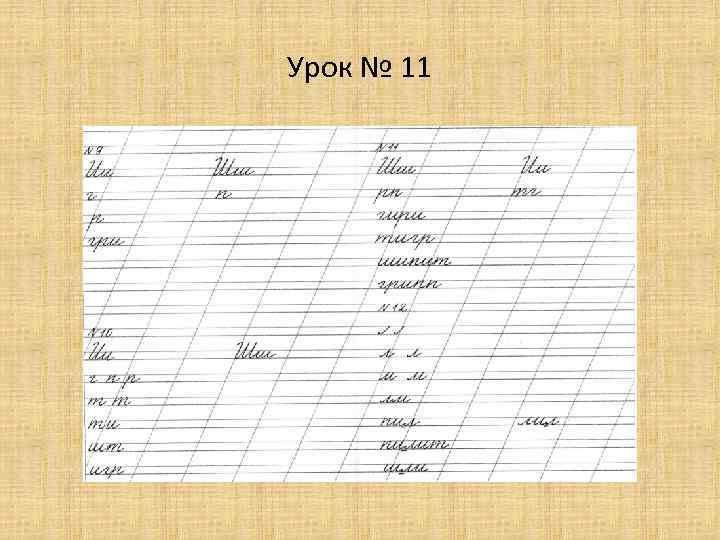 Урок № 11
№ 9
Ии Шш
г п
р
гри
№ 10
Ии Шш
г п р
т т
ти
шт
игр
№ 11
Шш Ии
рп тг
гири
тигр
шипит
грипп
№ 12
л л
м м
лм
пил
пилит
шли